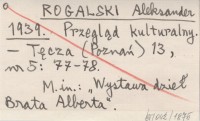 ROGALSKI Aleksander
1939. Przegląd kulturalny.
— Tęcza (Poznań) 13,
nr 5: 77-78.
M.in.: „Wystawa dzieł
Brata Alberta".